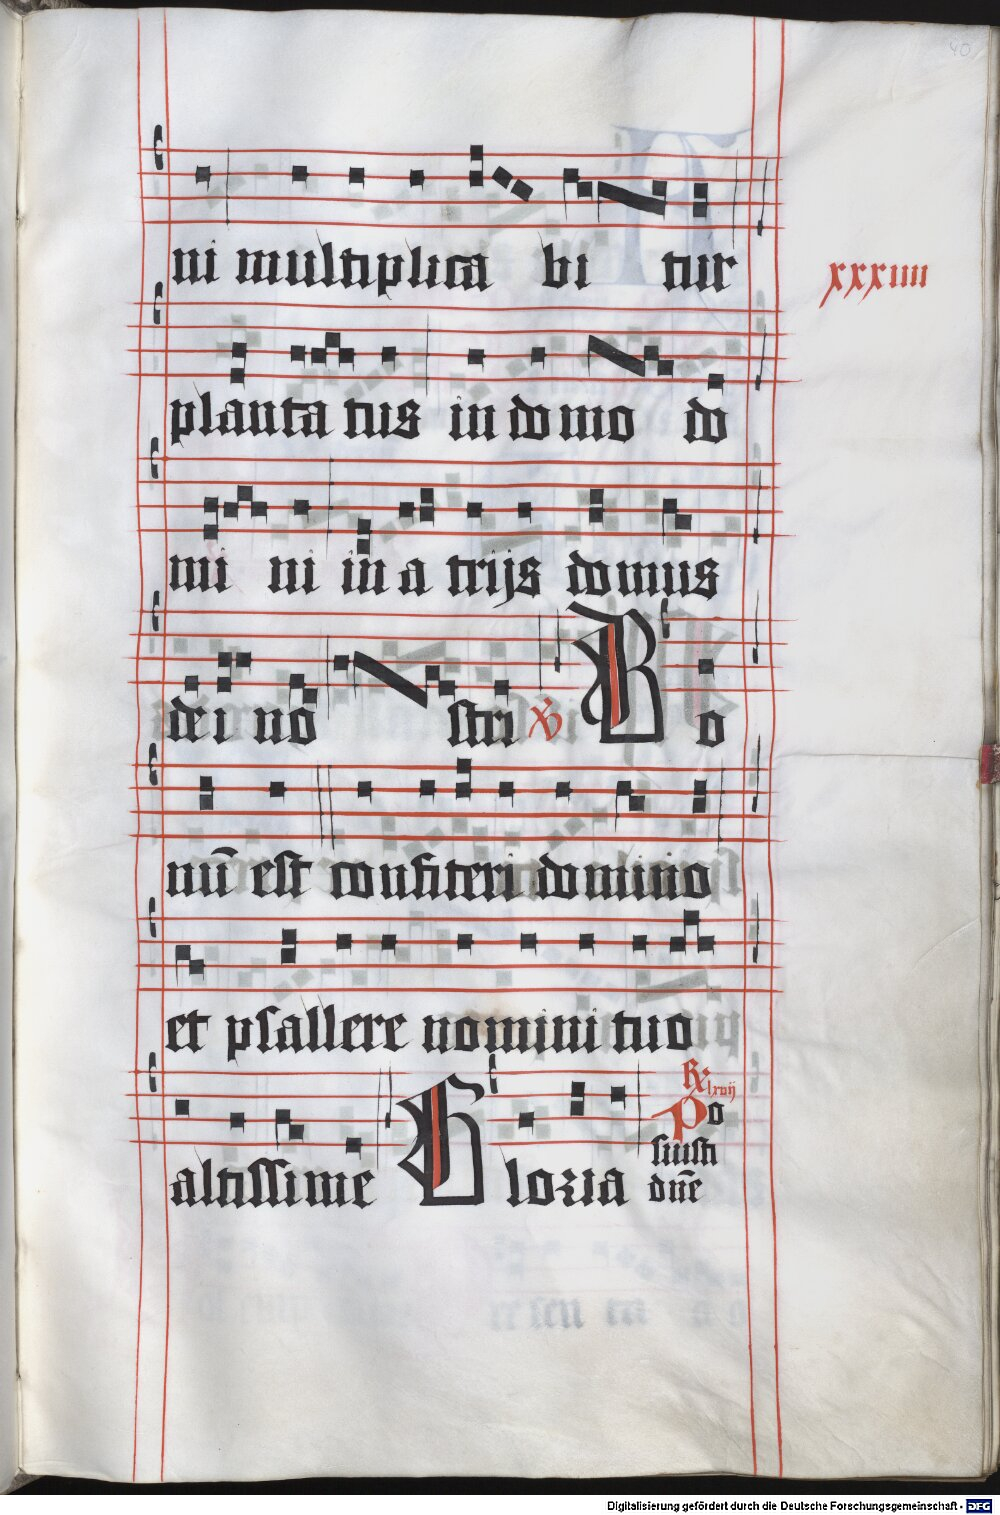 40
ni multiplica bi tur
xxxiiii
planta tus in domo do
mi ni in a trijs domus
dei no stri ℣ B o
nū est confiteri domino
et psallere nomini tuo
altissime G loria
℟ lxvij
Po
suisti
dn̄e
Digitalisierung gefördert durch die Deutsche Forschungsgemeinschaft - DFG